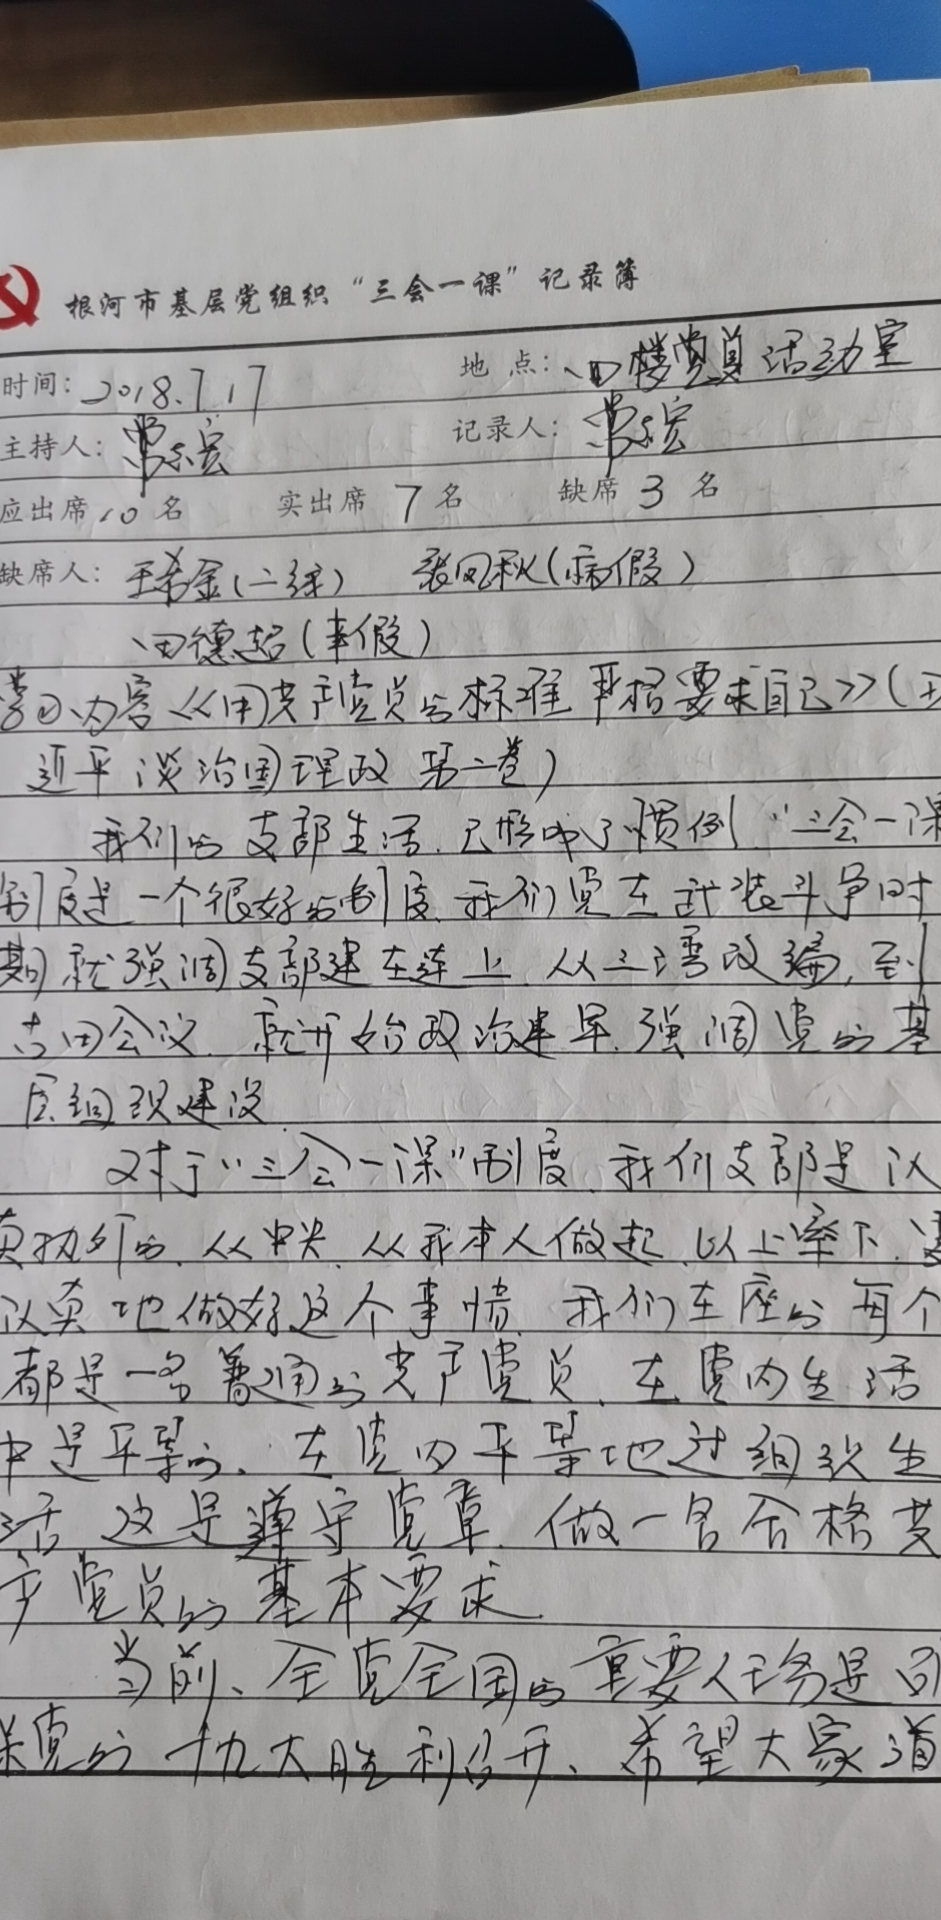 根河市基层党组织“三会一课”记录簿
时间：2018.7.17 地点：四楼党员活动室
主持人：常宏 记录人：常宏
应出席10名 实出席7名 缺席3名
缺席人：王希金(二线) 张凤秋(病假)
田德超(事假)
学习内容《用共产党员的标准严格要求自己》(习
近平谈治国理政第二卷)
我们的支部生活,已形成了惯例,“三会一课
制度是一个很好的制度,我们党在武装斗争时
期就强调支部建在连上,从三湾改编,到
古田会议,就开始政治建军,强调党的基
层组织建设
对于“三会一课”制度,我们支部是认
真执行的,从中央,从我本人做起,以上率下,要
认真地做好这个事情,我们在座的每个
都是一名普通的共产党员,在党内生活
中是平等的,在党内平等地过组织生
活这是遵守党章,做一名合格共
产党员的基本要求.
当前、全党全国的重要任务是
保党的十九大胜利召开、希望大家